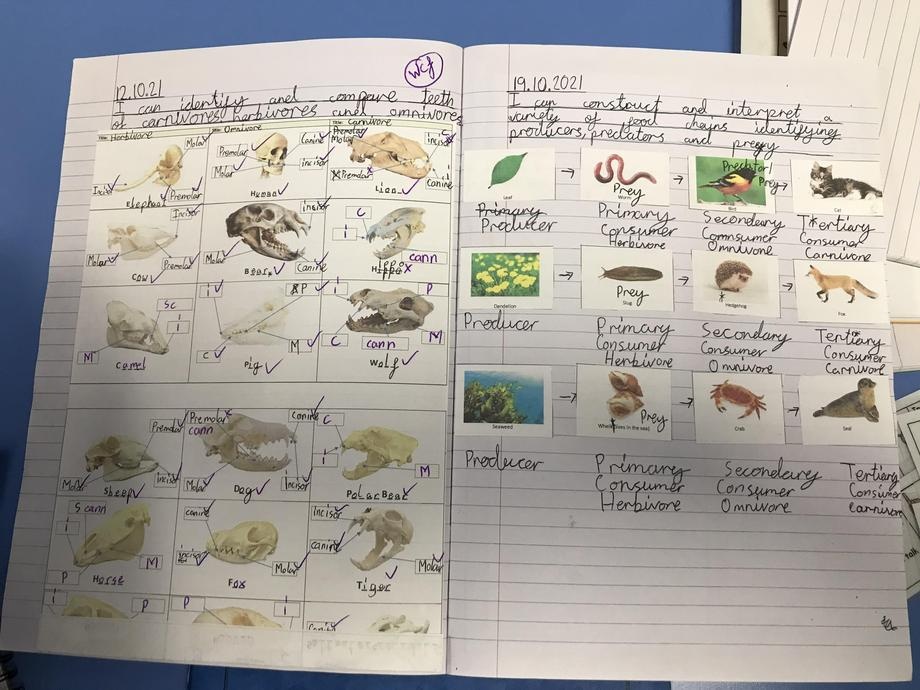 wcf
12.10.21
I can identify and compare teeth
of carnivores herbivores and omnivores
Herbivore
Molar
Incisor
Premolar
Elephant
Omnivore
Canine
Premolar
incisor
Molar
Human
Carnivore
Premolar
Molar
C
incisor
Premolar
Canine
Lion
Incisor
Molar
Premolar
Cow
incisor
Molar
Canine
Bear
C
I
cann
Hippo
Sc
I
M
Camel
I
P
C
M
Pig
P
C
cann
M
Wolf
Premolar
Molar
Incisor
Sheep
Premolar
cann
Canine
Molar
Incisor
Dog
C
I
M
Polar Bear
S cann
I
M
P
Horse
canine
incisor
Molar
Fox
Incisor
canine
Molar
Tiger
I
P
P
I
19.10.2021
I can construct and interpret a
variety of food chains identifying
producers, predators and prey
Leaf
Prey
Worm
Predator/
Prey
Bird
Cat
Primary
Producer
Primary
Consumer
Herbivore
Secondary
Comnsumer
Omnivore
Tertiary
Consumar
Carnivore
Dandelion
Prey
Slug
Hedgehog
Fox
Producer
Primary
Consumer
Herbivore
Secondary
Consumer
Omnivore
Tertiary
Consumer
Carnivore
Seaweed
Prey
Whelk (lives in the sea)
Crab
Seal
Producer
Primary
Consumer
Herbivore
Secondary
Consumer
Omnivore
Tertiary
Consumer
Carnivore